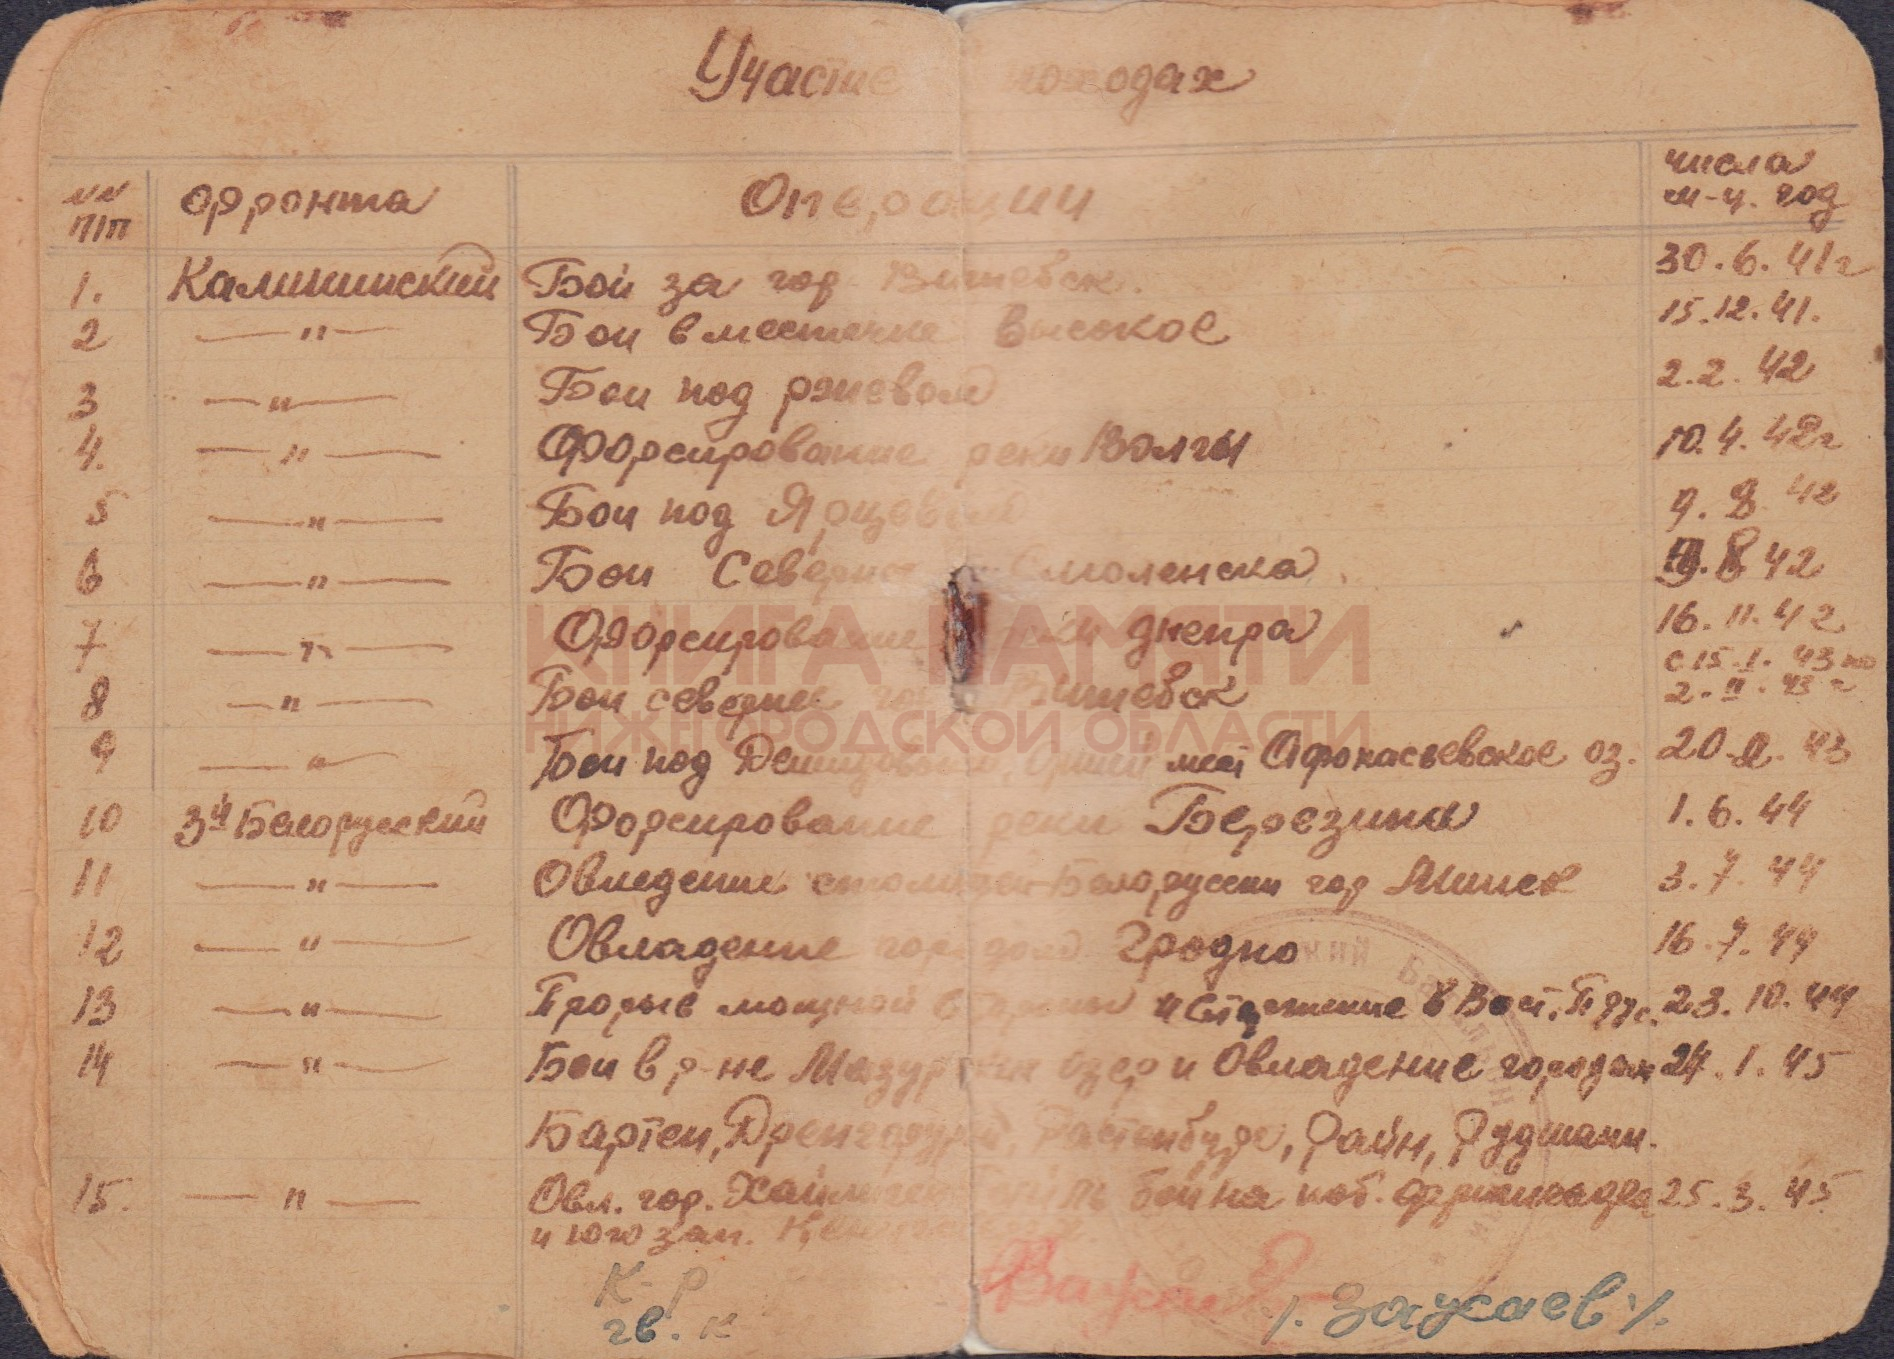 Участие походах
№№ п/п фронта Операции числа м-ц. год
1. Калининский Бои за гор. Витебск. 30.6.41г
2 —"— Бои в местечке Высокое 15.12.41.
3 —"— Бои под ржевом 2.2.42
4. —"— Форсирование реки Волгы 10.4.42г
5 —"— Бои под Ярцевом 9.8.42
6 —"— Бои Севернее Смоленска 8 42
7 —"— Форсирование реки днепра 16.11.42
с 15.I.43 по
8 —"— Бои севернее Витебск 2.II.43г
9 —"— Бои под мест Афонасьевское оз. 20. 43
10 3й Белорусский Форсирование реки Березина 1.6.44
11 —"— Овледение столицей Белоруссии гор Минск 3.7.44
12 —"— Овладение городом Гродно 16.7.44
13 —"— Прорыв мощной обороны и в Вост. Прус. 23.10.44
14 —"— Бои в р-не Мазурских озер и Овладение городам 24.1.45
Бартен, Растенбург, Райн, Рудшани.
15. —"— Овл. гор. бои на 25.3.45
и юго зап.
К-р
гв. к /. Заусаев /.
КНИГА ПАМЯТИ
НИЖЕГОРОДСКОЙ ОБЛАСТИ